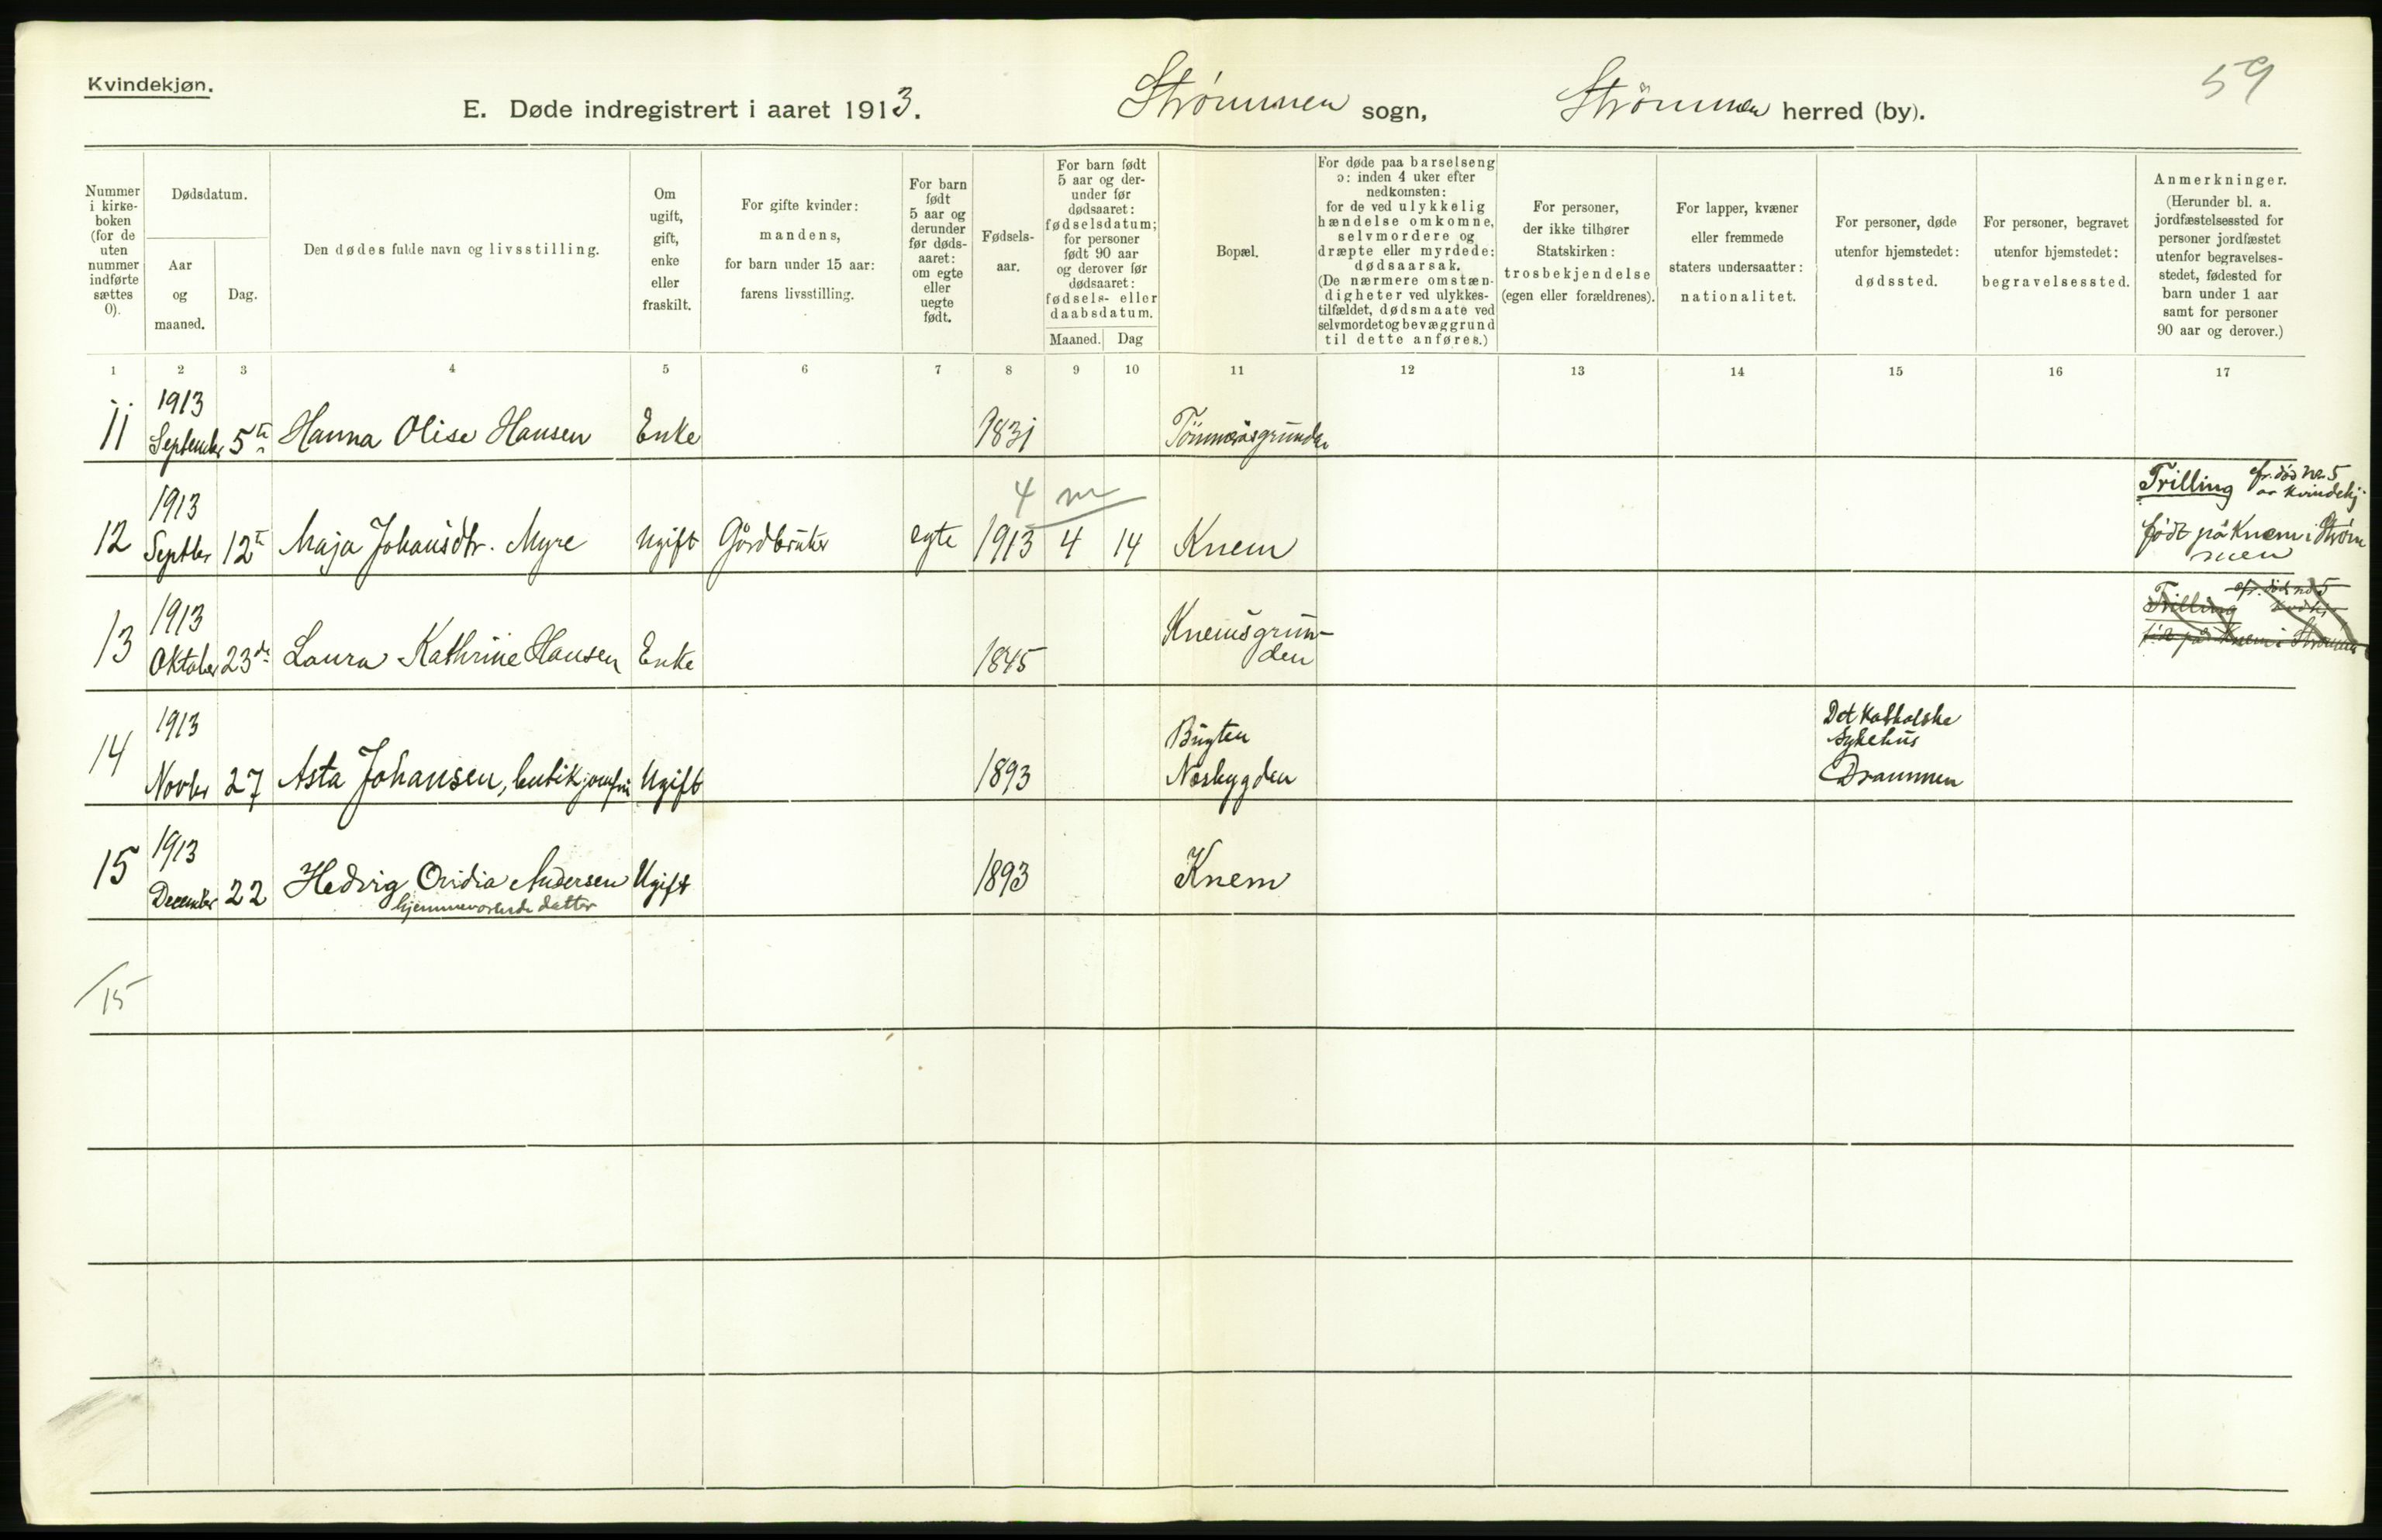 Kvindekjøn.
59
E. Døde indregistrert i aaret 1913.
Strømmen sogn,
Strømmen herred (by).
Nummer
i kirke-
boken
(for de
uten
nummer
indførte
sættes
0).
Dødsdatum.
Aar
og
maaned.
Dag.
Den dødes fulde navn og livsstilling.
Om
ugift,
gift,
enke
eller
fraskilt.
For gifte kvinder:
mandens,
for barn under 15 aar:
farens livsstilling.
For barn
født
5 aar og
derunder
før døds-
aaret:
om egte
eller
uegte
født.
Fødsels-
aar.
For barn født
5 aar og der-
under før
dødsaaret:
fødselsdatum;
for personer
født 90 aar
og derover før
dødsaaret:
fødsels- eller
daabsdatum.
Maaned.
Dag
Bopæl.
For døde paa barselseng
ɔ: inden 4 uker efter
nedkomsten:
for de ved ulykkelig
hændelse omkomne,
selvmordere og
dræpte eller myrdede:
dødsaarsak.
(De nærmere omstæn-
digheter ved ulykkes-
tilfældet, dødsmaate ved
selvmordet og bevæggrund
til dette anføres.)
For personer,
der ikke tilhører
Statskirken:
trosbekjendelse
(egen eller forældrenes).
For lapper, kvæner
eller fremmede
staters undersaatter:
nationalitet.
For personer, døde
utenfor hjemstedet:
dødssted.
For personer, begravet
utenfor hjemstedet:
begravelsessted.
Anmerkninger.
(Herunder bl. a.
jordfæstelsessted for
personer jordfæstet
utenfor begravelses-
stedet, fødested for
barn under 1 aar
samt for personer
90 aar og derover.)
1 2 3 4 5 6 7 8 9 10 11 12 13 14 15 16 17
1913
11 September 5te Hanna Olise Hansen Enke 1831
4 m
1913
12 Septbr 12te Maja Johansdtr. Myre Ugift Gårdbruker egte 1913 4 14 Knem
Trilling cfr. død no 5
av kvindekj.
født på Knem i Strøm
men
1913
13 Oktober 23de Laura Kathrine Hansen Enke 1845
Knemsgrun-
den
Trilling cfr. død no 5
født på Knem i Strømmen
1913
14 Novbr 27 Asta Johansen, butikjomfru Ugift 1893
Bugten
Nesbygden
Det katholske
sykehus
Drammen
1913
15 December 22 Hedvig Ovidia Andersen Ugift 1893 Knem
hjemmeværende datter
15